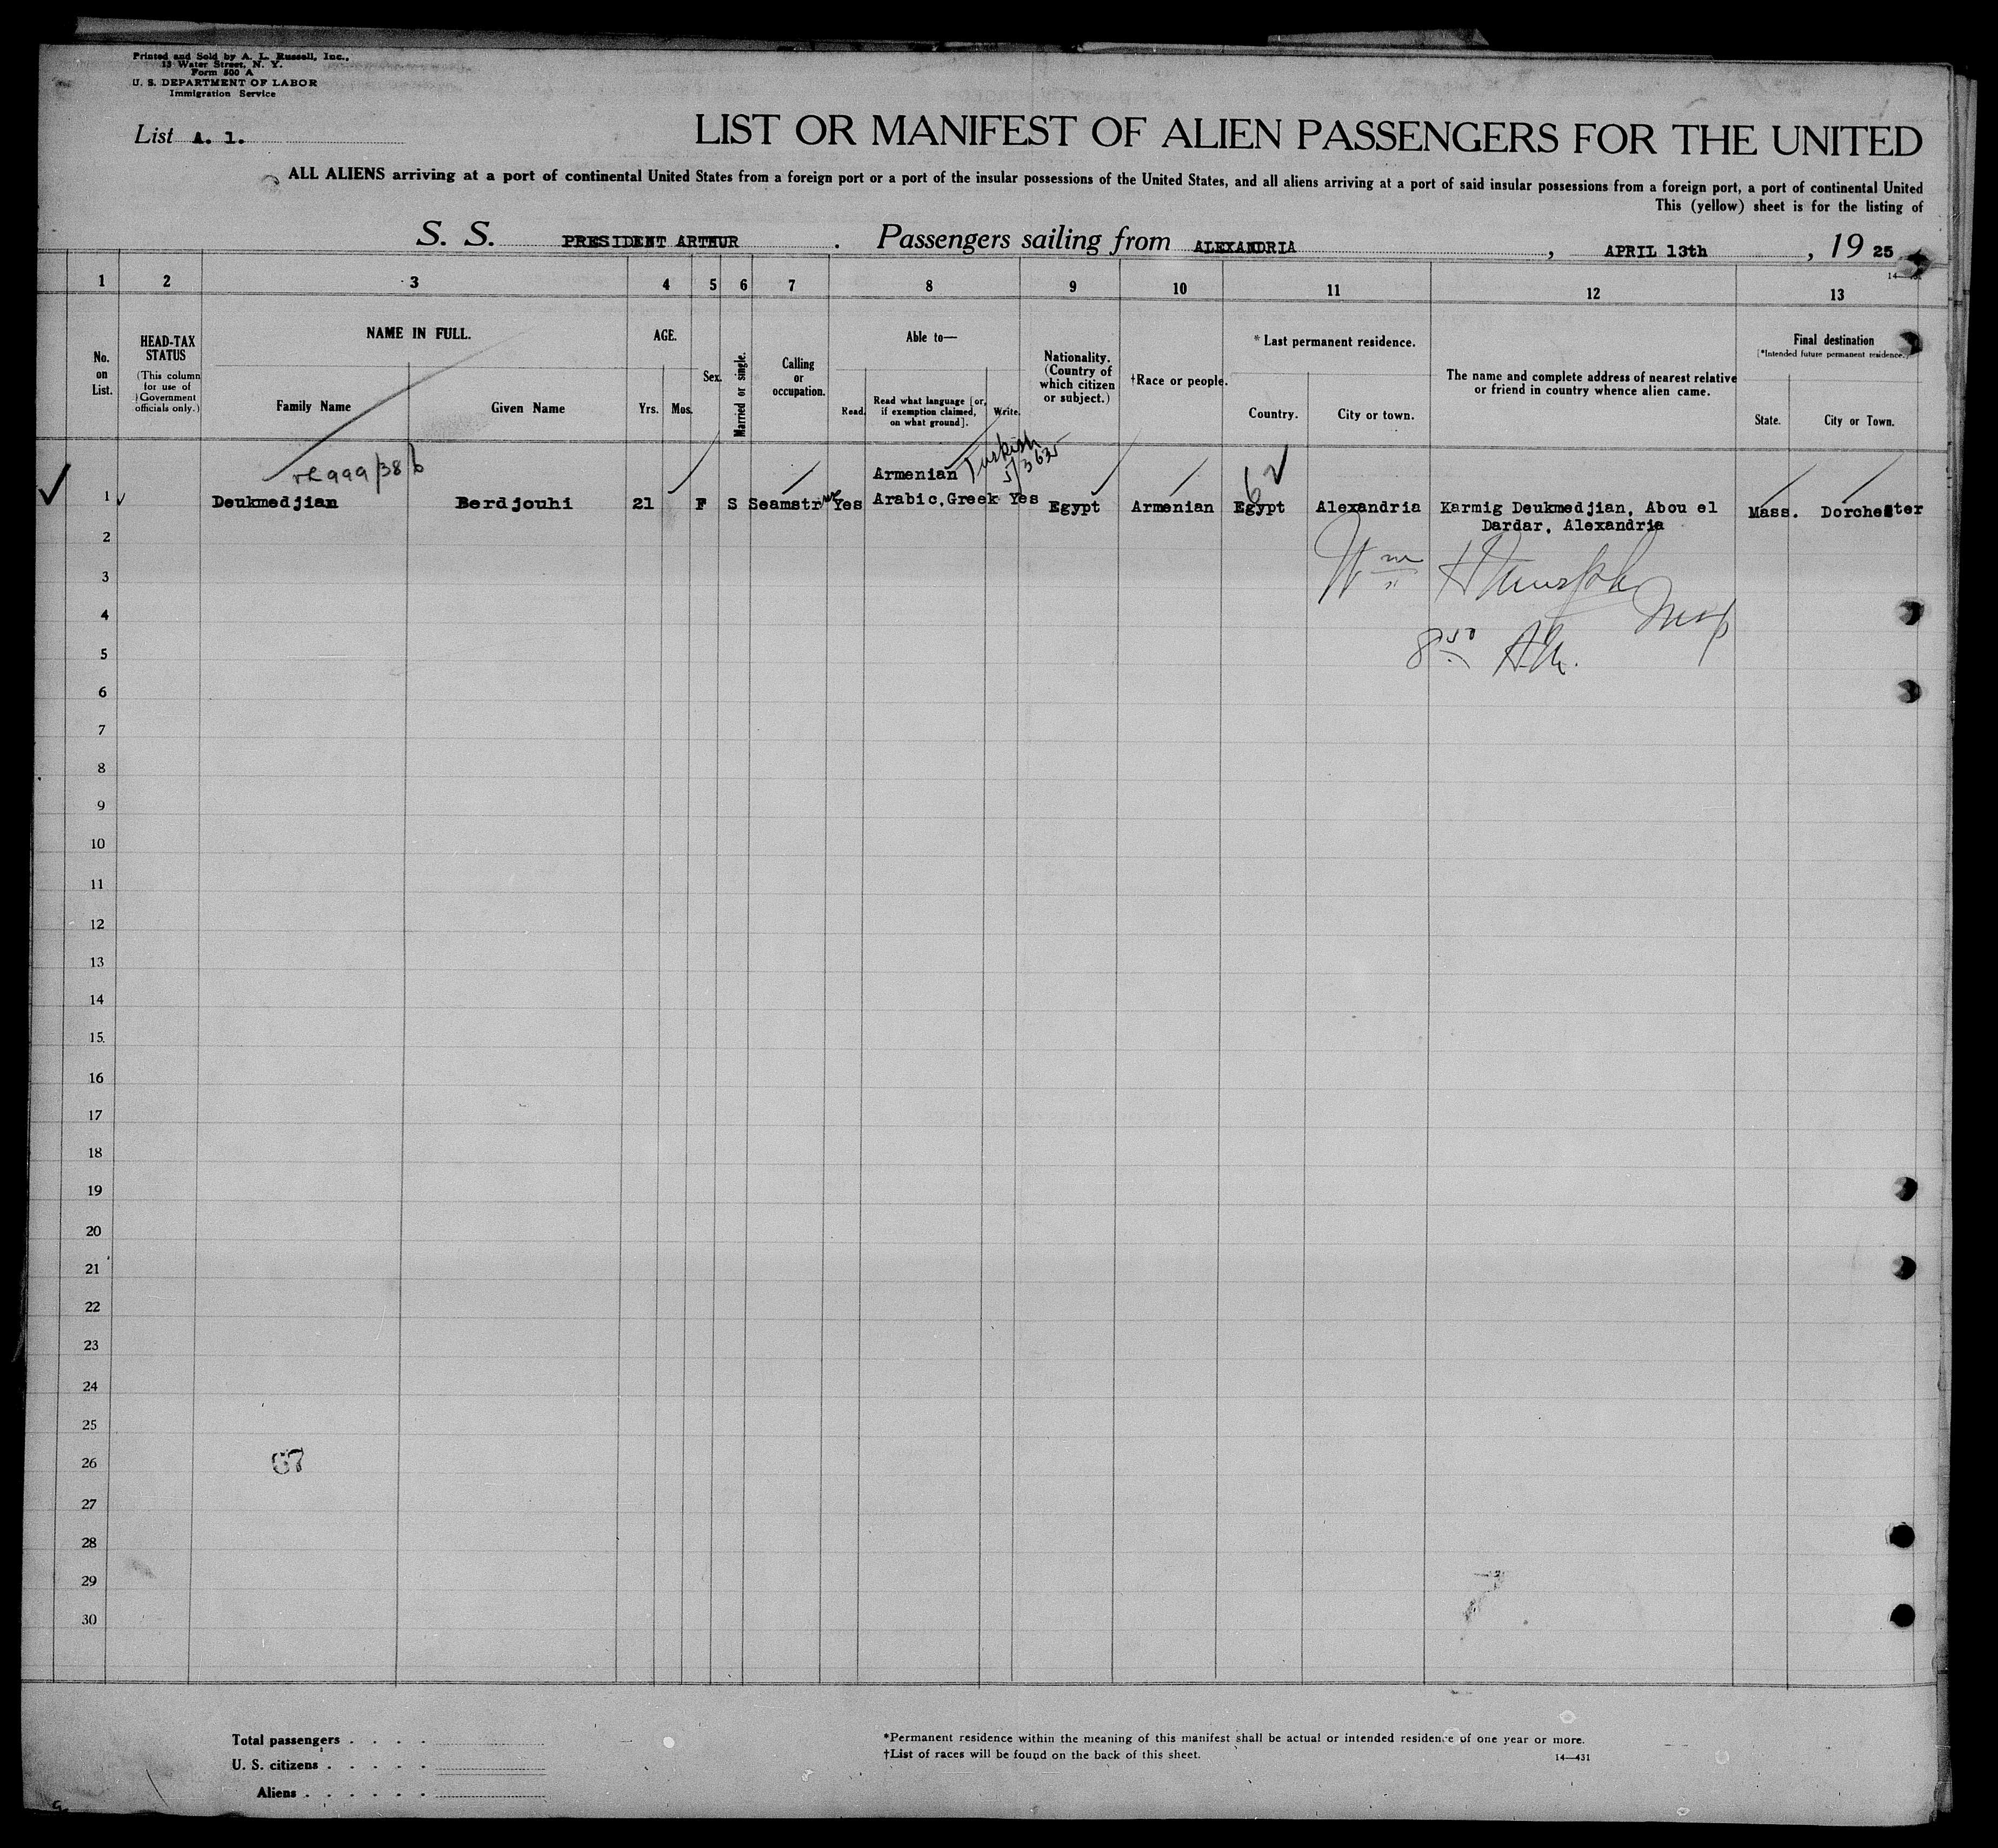 Printed and Sold by A. L. Russell, Inc.,
13 Water Street, N. Y.
Form 500 A
U. S. DEPARTMENT OF LABOR
Immigration Service
List A. 1.
LIST OR MANIFEST OF ALIEN PASSENGERS FOR THE UNITED
ALL ALIENS arriving at a port of continental United States from a foreign port or a port of the insular possessions of the United States, and all aliens arriving at a port of said insular possessions from a foreign port, a port of continental United
This (yellow) sheet is for the listing of
S. S. PRESIDENT ARTHUR . Passengers sailing from ALEXANDRIA , APRIL 13th , 19 25
1 2 3 4 5 6 7 8 9 10 11 12 13
No. on List.
HEAD-TAX STATUS
(This column for use of Government officials only.)
NAME IN FULL.
Family Name Given Name
AGE.
Yrs. Mos.
Sex.
Married or single.
Calling or occupation.
Able to—
Read. Read what language [or, if exemption claimed, on what ground]. Write.
Nationality. (Country of which citizen or subject.)
†Race or people.
*Last permanent residence.
Country. City or town.
The name and complete address of nearest relative or friend in country whence alien came.
Final destination
(*Intended future permanent residence.)
State. City or Town.
999/38 b
Armenian Turkish
62
1 Deukmedjian Berdjouhi 21 F S Seamstr Yes Arabic,Greek Yes Egypt Armenian Egypt Alexandria Karmig Deukmedjian, Abou el Mass. Dorchester
Dardar, Alexandria
2
Wm H Murphy
3
4
Insp
5
8 50 AM.
6
7
8
9
10
11
12
13
14
15
16
17
18
19
20
21
22
23
24
25
26
67
27
28
29
30
Total passengers . . . .
U. S. citizens . . . . .
Aliens . . . . . .
*Permanent residence within the meaning of this manifest shall be actual or intended residence of one year or more.
†List of races will be found on the back of this sheet.
14—431